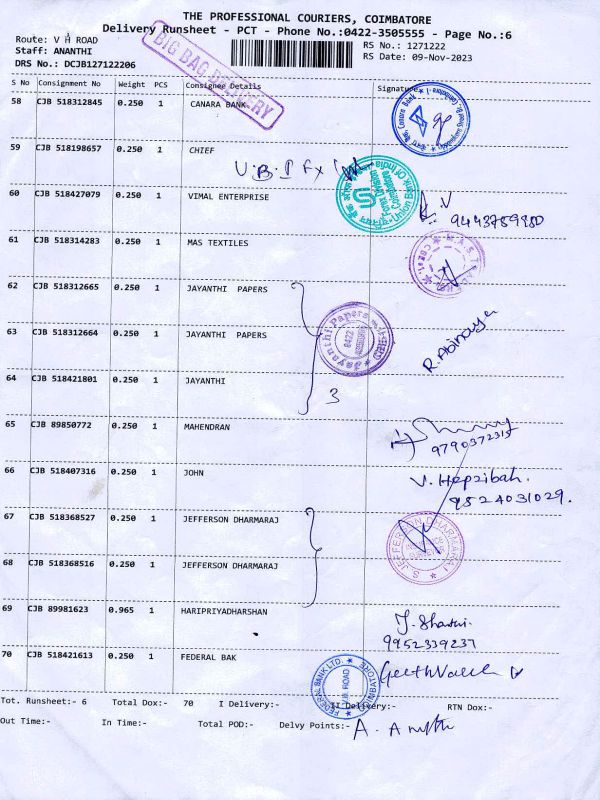 THE PROFESSIONAL COURIERS, COIMBATORE
Delivery Runsheet - PCT - Phone No.:0422-3505555 - Page No.:6
Route: V H ROAD
RS No.: 1271222
Staff: ANANTHI
RS Date: 09-Nov-2023
DRS No.: DCJB127122206
BIG BAG DELIVERY
S No Consignment No Weight PCS Consignee Details Signature
58 CJB 518312845 0.250 1 CANARA BANK
Canara Bank
59 CJB 518198657 0.250 1 CHIEF
U.B.I Fx
Union Bank Of India
60 CJB 518427079 0.250 1 VIMAL ENTERPRISE
K. V
9443789980
61 CJB 518314283 0.250 1 MAS TEXTILES
62 CJB 518312665 0.250 1 JAYANTHI PAPERS
Jayanthi Papers
0422
63 CJB 518312664 0.250 1 JAYANTHI PAPERS
R. Abinaya
64 CJB 518421801 0.250 1 JAYANTHI
3
65 CJB 89850772 0.250 1 MAHENDRAN
9790372315
66 CJB 518407316 0.250 1 JOHN
V. Hepzibah.
9524031029.
67 CJB 518368527 0.250 1 JEFFERSON DHARMARAJ
S. JEFFERSON DHARMARAJ
68 CJB 518368516 0.250 1 JEFFERSON DHARMARAJ
69 CJB 89981623 0.965 1 HARIPRIYADHARSHAN
J. Shanthi.
9952339237
70 CJB 518421613 0.250 1 FEDERAL BAK
FEDERAL BANK LTD. COIMBATORE
Tot. Runsheet:- 6 Total Dox:- 70 I Delivery:- II Delivery:- RTN Dox:-
Out Time:- In Time:- Total POD:- Delvy Points:-